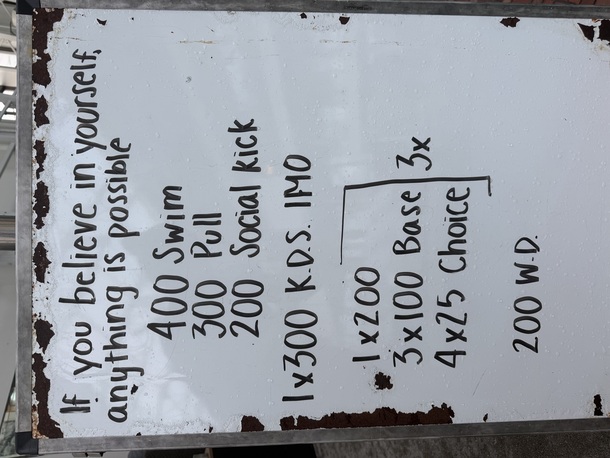 If you believe in yourself,
anything is possible
400 Swim
300 Pull
200 Social kick
1x300 K.D.S. IMO
1x200
3x100 Base 3x
4x25 Choice
200 W.D.